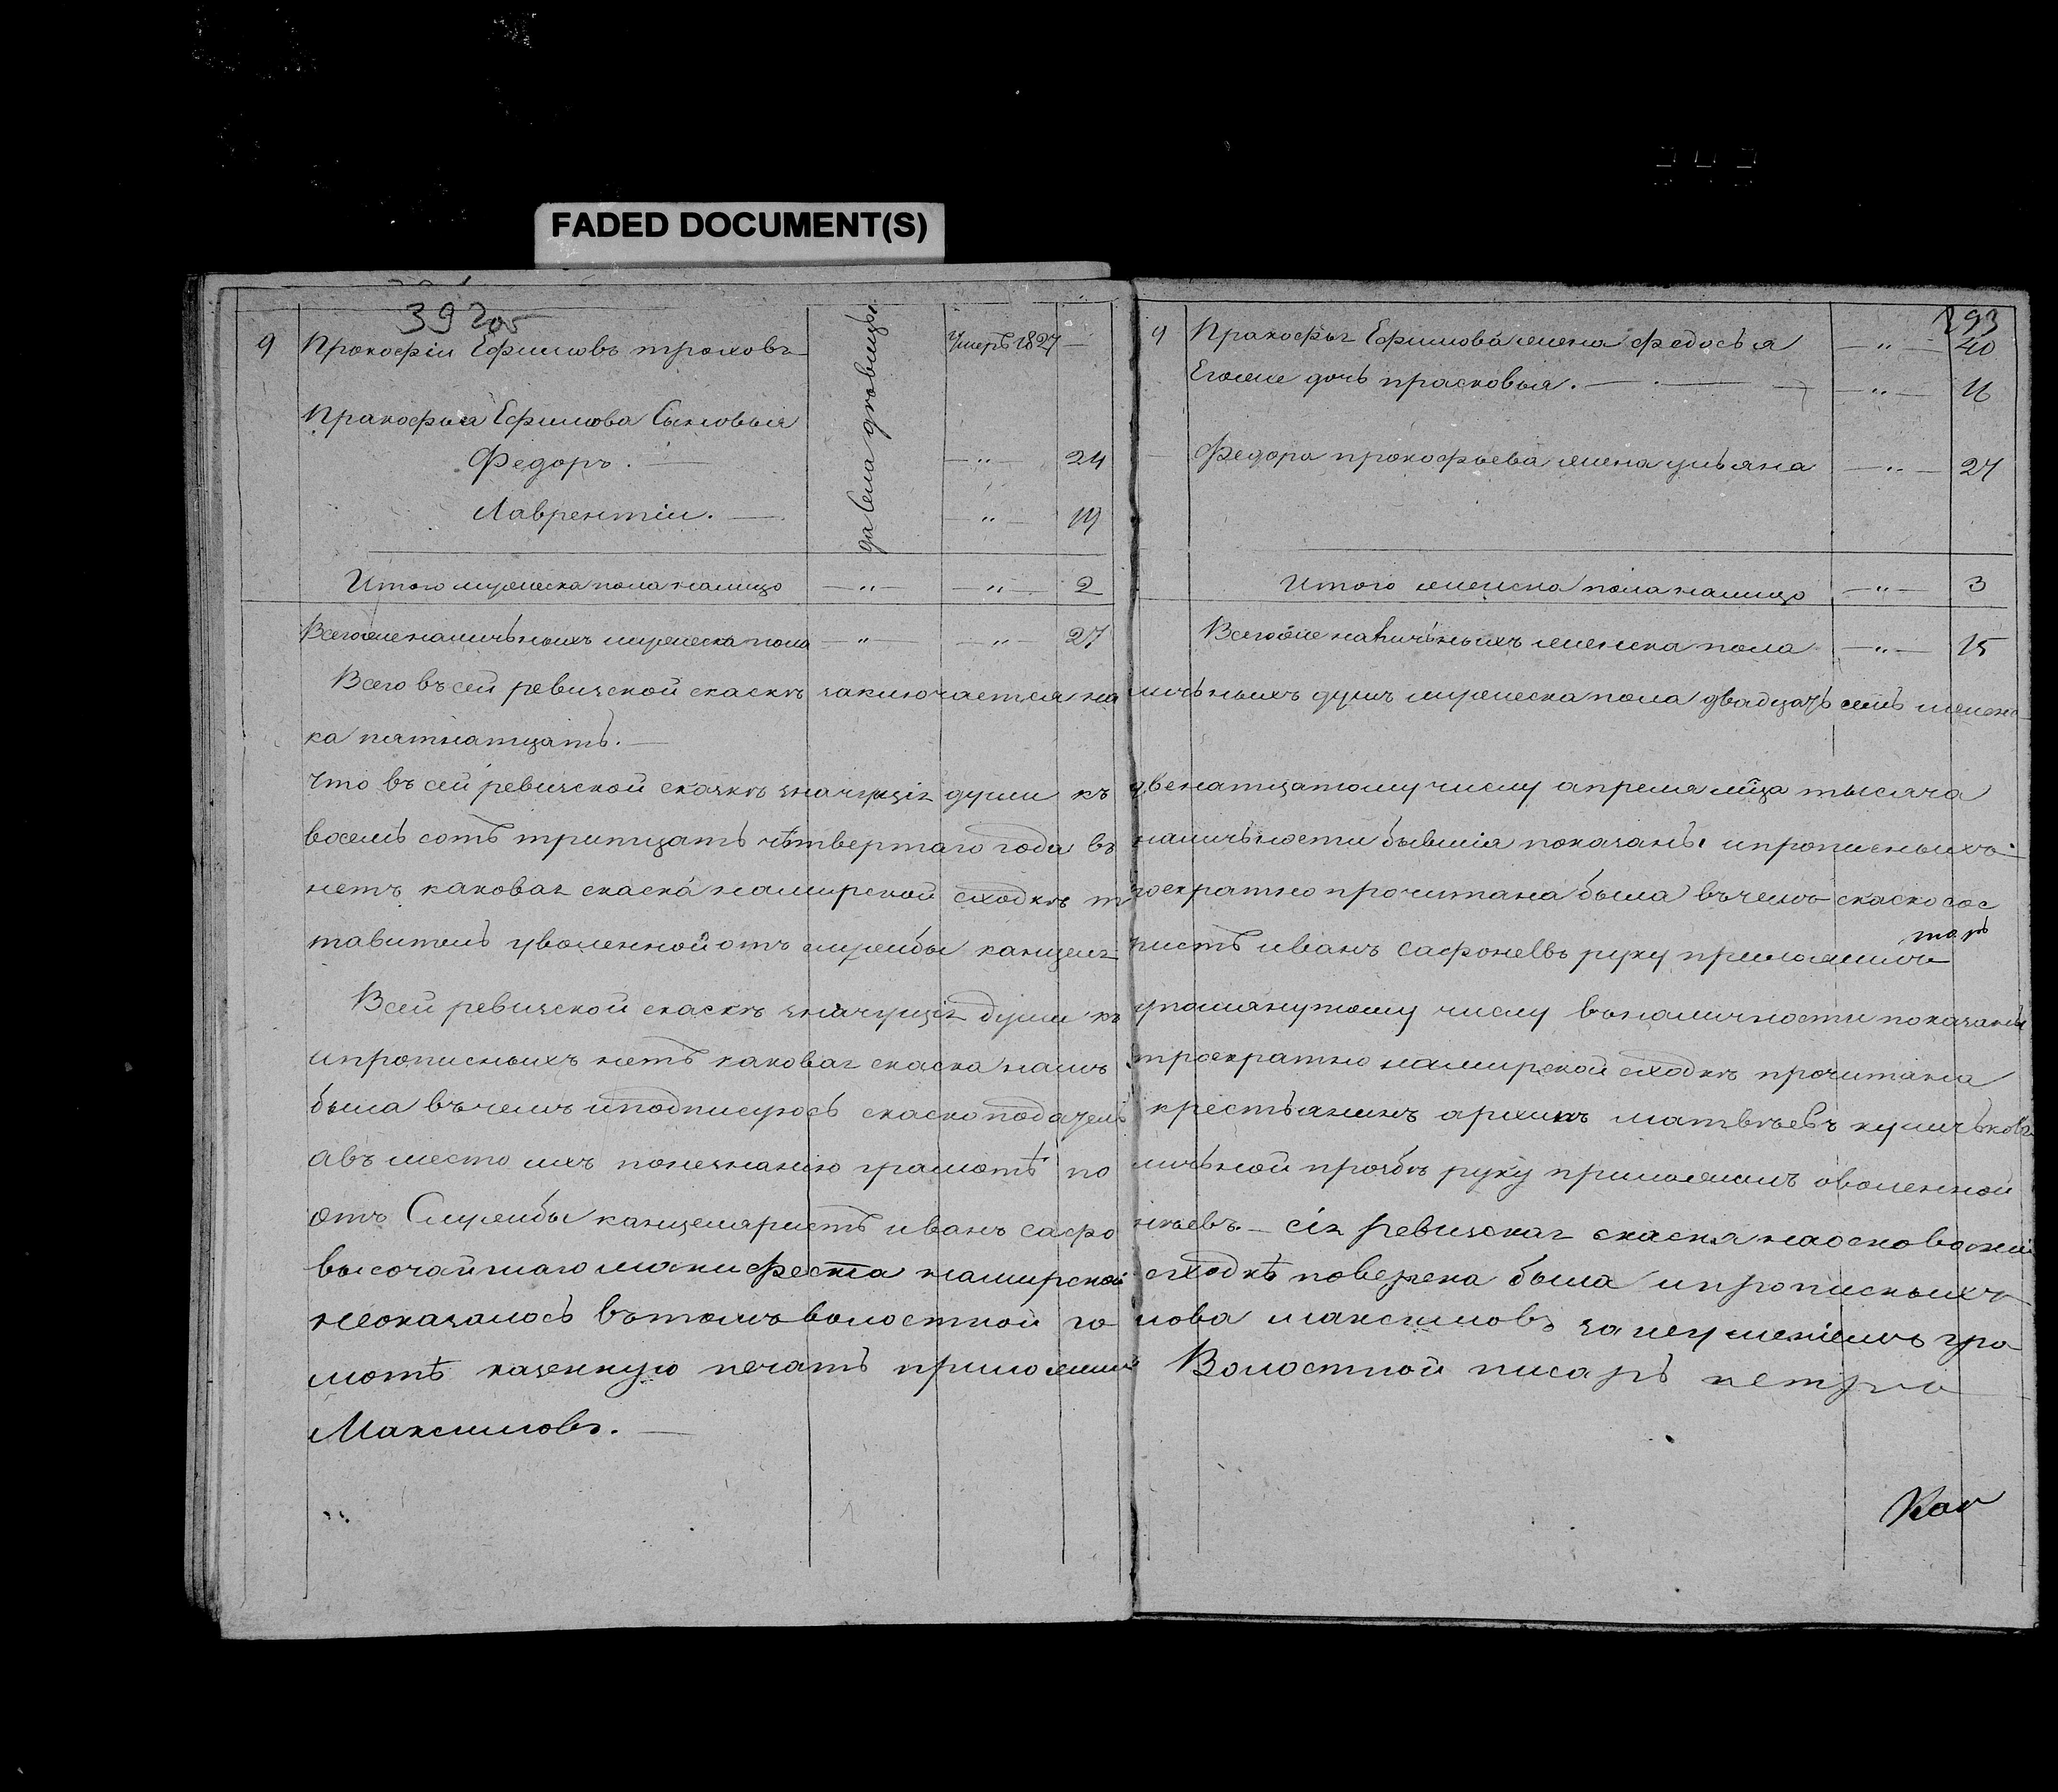 FADED DOCUMENT(S)
392об
9 Прокофіи Ефимовъ троховъ Умеръ 1827 —
Пракофья Ефимова Сыновья
Федоръ. — " — 24
Лаврентіи. — " — 19
Итого мужеска пола налицо — " — " — 2
Всегоже наличьныхъ мужеска пола — " — " — 27
393
9 Пракофья Ефимова жена федосья — " — 40
Егоже дочь прасковья. — " — 16
Федора прокофьева жена ульяна — " — 27
Итого женска пола налицо — " — 3
Всегоже наличьныхъ женска пола — " — 15
Всего въсей ревизской скаскѣ заключается на личьныхъ душъ мужеска пола двадцать семь женс
ка пятнатцать. —
Что въ сей ревизской сказкѣ значущія души къ двенатцатому числу апреля мца тысяча
восемь сотъ тритцать четвертаго года въ наличьности бывшія показаны ипрописныхъ
нетъ каковая скаска намирской сходкѣ троекратно прочитана была вѣчемъ скаско сос
тавитель уволенной отъ службы канцеля ристъ иванъ Сафонеевъ руку приложилъ
Всей ревизской скаскѣ значущія души къ упомянутому числу вналичности показаны
ипрописныхъ нетъ каковая скаска намъ троекратно намирской сходкѣ прочитана
была въчемъ иподписуюсь скаско податель крестьянинъ архипъ матвѣевъ
авъ место ихъ понезнанию грамотѣ по личьной прозбѣ руку приложилъ оволенной
отъ Службы канцеляристъ иванъ сафо нѣевъ. — сія ревизская скаска наосновании
высочайшаго манифеста намирской сходкѣ поверена была ипрописныхъ
неоказалось вътомъ волостной го лова максимовъ занеумениемъ гра
мотѣ казенную печать приложилъ Волостной писарь петръ
Максимовъ. —